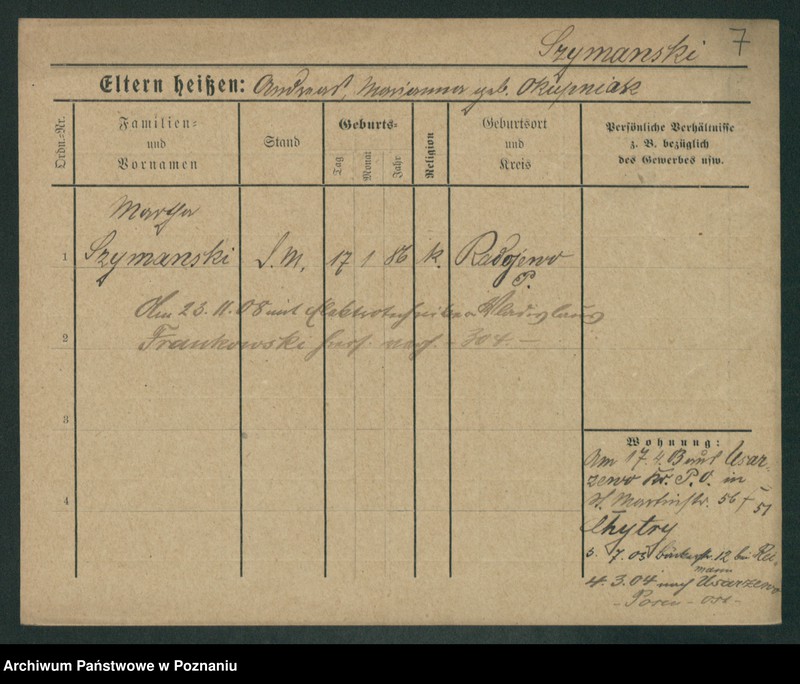 Szymanski 7
Eltern heißen: Andreas, Marianna geb. Okupniak
Ordn.=Nr.
Familien=
und
Vornamen
Stand
Geburts=
Tag
Monat
Jahr
Religion
Geburtsort
und
Kreis
Persönliche Verhältnisse
z. B. bezüglich
des Gewerbes usw.
Martha
1 Szymanski 17 1 86 k.
P.
Am 23.11.08 mit Elektrotechniker Wladislaus
2
Frankowski nach 304.
3
4
Wohnung:
Am 17. 4. aus Usar
zewo Kr. P. O. in
St. Martinstr. 56
51
Chytry
7. 03 12 bei
mann
4. 3. 04 nach Usarzewo
Posen - Ost -
Archiwum Państwowe w Poznaniu